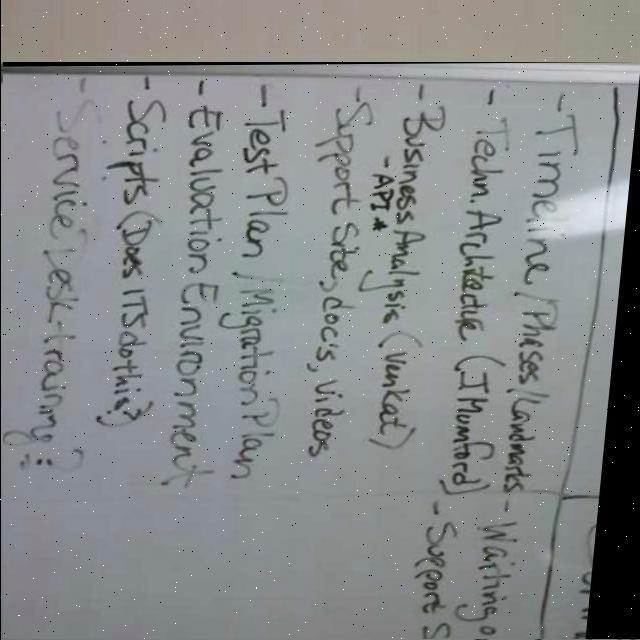 - Timeline/Phases/Landmarks
- Techn. Architectue (J Mumford)
- Business Analysis (Venkat)
- API *
- Support Site, docs, Videos
- Test Plan / Migration Plan
- Evaluation Environment
- Scripts (Does ITS do this?)
- Service Desk - training?
- Waiting o
- Support S